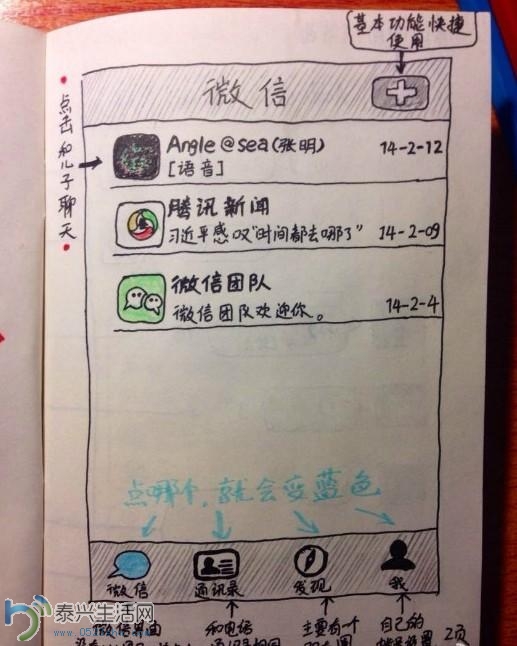 基本功能快捷
使用
微信
点击和儿子聊天
Angle@sea(张明)
14-2-12
[语音]
腾讯新闻
习近平感叹"时间都去哪了"
14-2-09
微信团队
微信团队欢迎你。
14-2-4
点哪个,就会变蓝色
微信
通讯录
发现
我
泰兴生活网
微信界面
和电话
主要有一个
自己的
2页